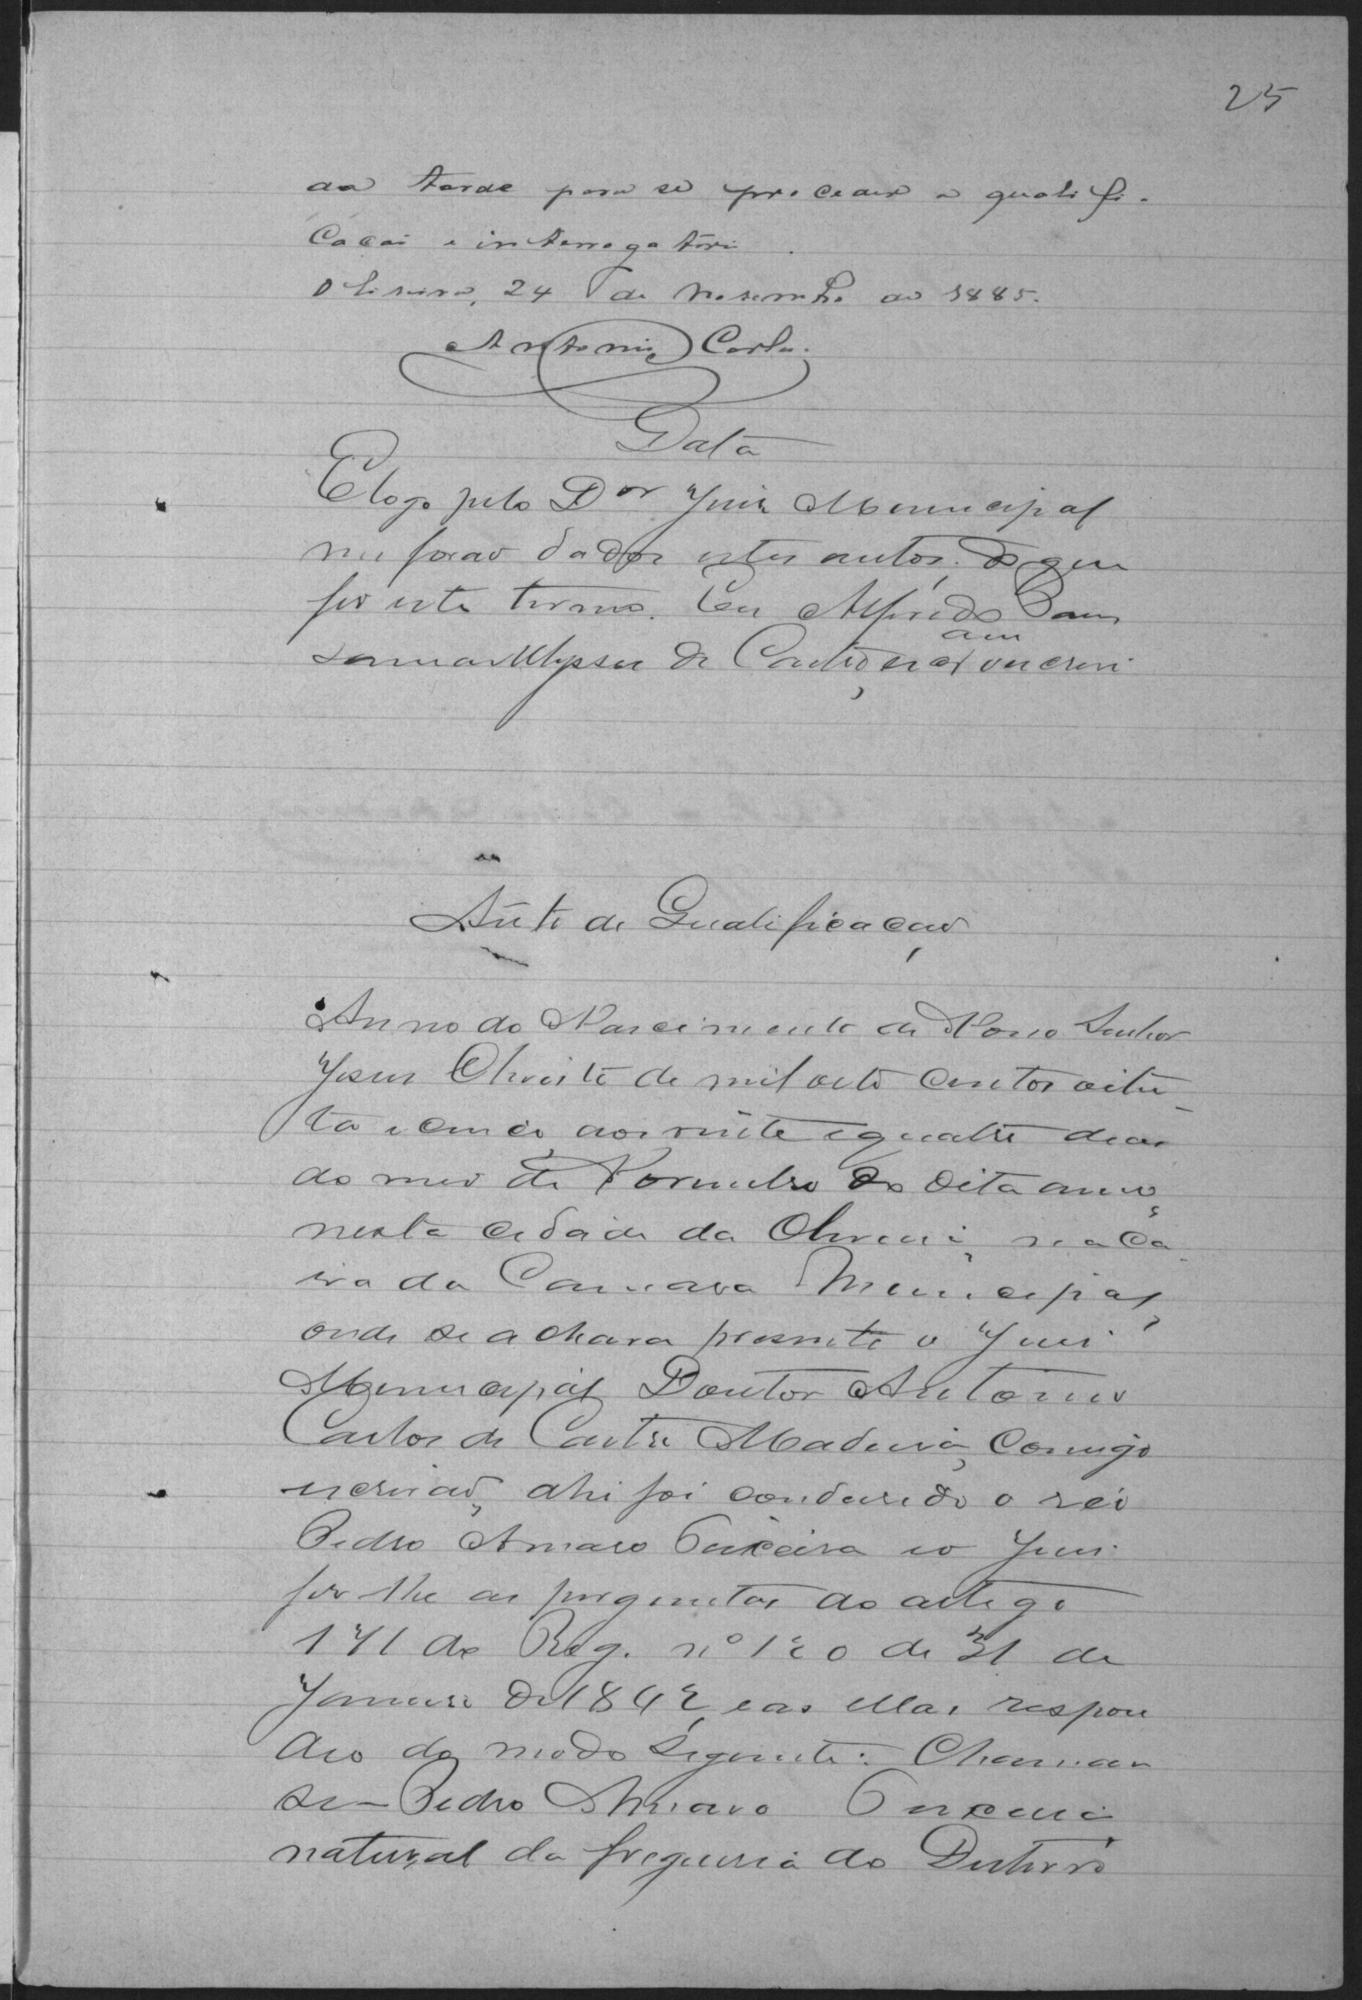 25
da tarde para se proceder a qualifi-
cação e interrogatorio.
Oliveira, 24 de Novembro de 1885.
Antonio Carlos
Data
E logo pelo Dor Juiz Municipal
me forão dados estes autos; do que
fiz este termo. Eu Alfredo
Ulysses de Castro, escrivão escrevi
Auto de Qualificação
Anno do Nascimento de Nosso Senhor
Jesus Christo de mil oito centos oiten-
ta e cinco, aos vinte e quatro dias
do mez de Novembro do dito anno,
nesta cidade da Oliveira, na Ca
sa da Camara Municipal,
onde se achava presente o Juiz
Municipal Doutor Antonio
Carlos de Castro Madeira, comigo
escrivão, ahi foi conduzido o réo
Pedro Amaro Teixeira e o Juiz
fez-lhe as perguntas do artigo
171 do Reg. nº 120 de 31 de
Janeiro de 1842, e as ellas respon
deo do modo seguinte: Chamar
se — Pedro Amaro Teixeira
natural da freguesia do Desterro